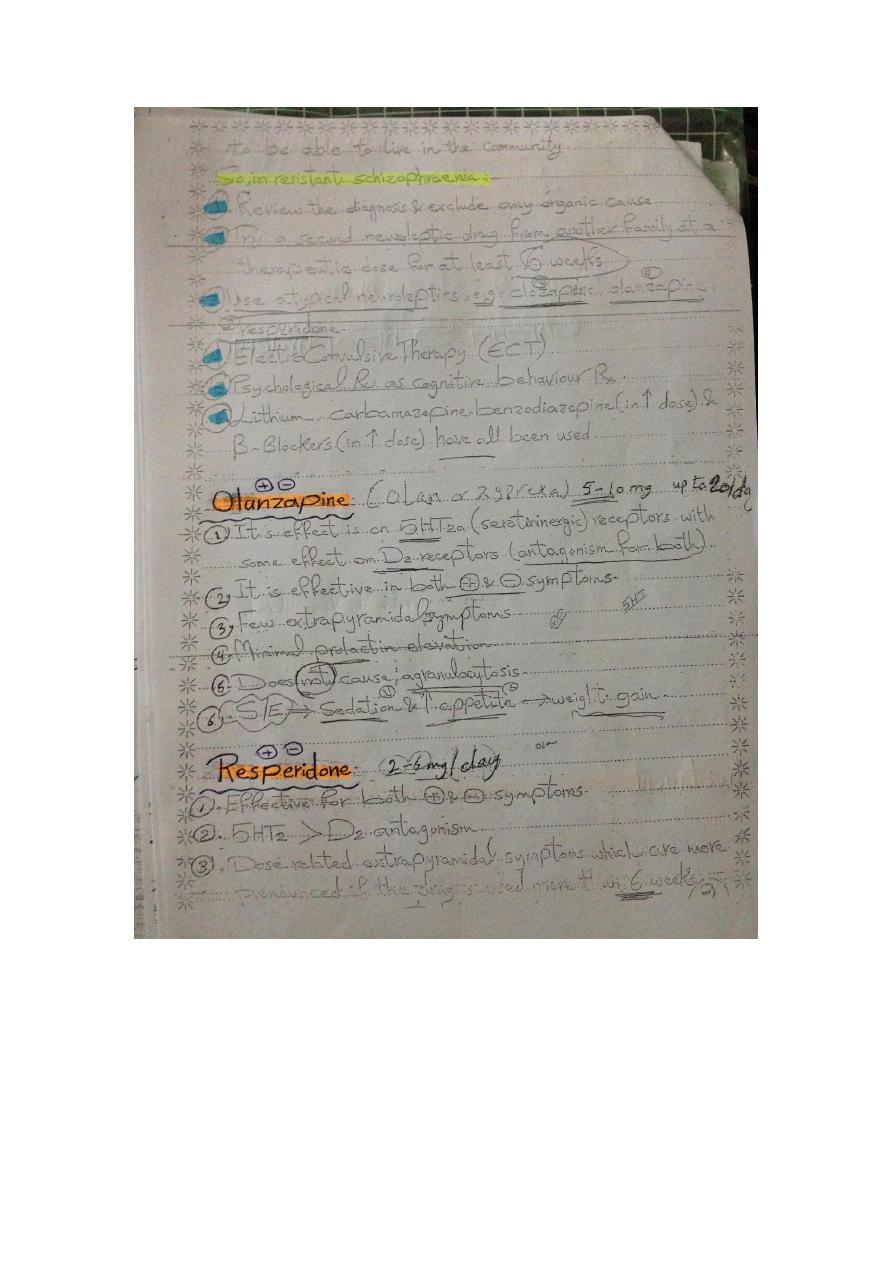 to be able to live in the community.
So, in resistant schizophraenia:
① Review the diagnosis & exclude any organic cause.
② Try a second neuroleptic drug from another family at a
therapeutic dose for at least 6 weeks
③ Use atypical neuroleptics, e.g. clozapine, olanzapine,
resperidone.
④ Electro Covulsive Therapy (ECT)
⑤ Psychological Rx as cognitive behaviour Rx.
⑥ Lithium, carbamazepine, benzodiazepine (in ↑ dose) &
β-Blockers (in ↑ dose) have all been used.
⊕ ⊖
Olanzapine (OLan or Zyprexa) 5-10 mg up to 20/day
① It's effect is on 5HT2a (serotoninergic) receptors with
some effect on D2 receptors (antagonism for both).
② It is effective in both ⊕ & ⊖ symptoms.
③ Few extrapyramidal symptoms
5HT
④ Minimal prolactin elevation
⑤ Does not cause; agranulocytosis.
⑥ S/E → Sedation & ↑ appetite → weight gain.
⊕ ⊖
Resperidone. (2-6 mg/day)
①. Effective for both ⊕ & ⊖ symptoms.
②. 5HT2 > D2 antagonism
③. Dose related extrapyramidal symptoms which are more
pronounced if the drug is used more than 6 weeks.